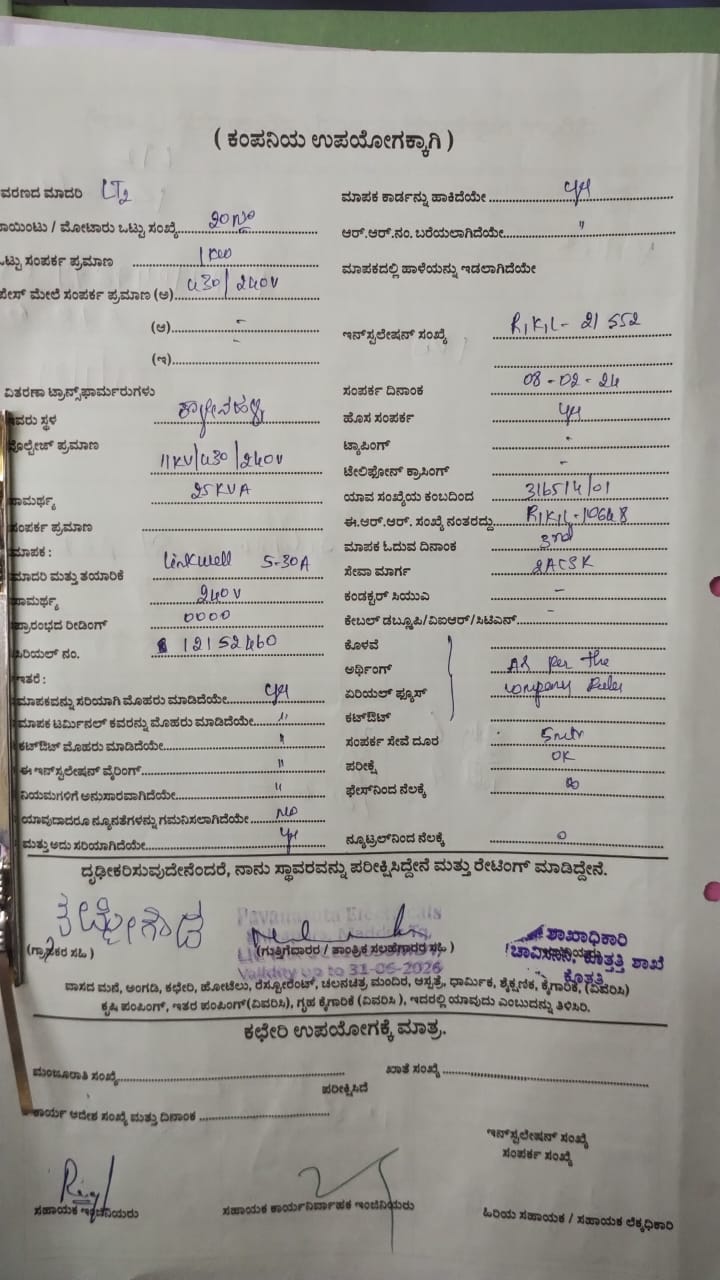 ( ಕಂಪನಿಯ ಉಪಯೋಗಕ್ಕಾಗಿ )
ವರಣದ ಮಾದರಿ LT2
ಾಯಿಂಟು / ಮೋಟಾರು ಒಟ್ಟು ಸಂಖ್ಯೆ
ಟ್ಟು ಸಂಪರ್ಕ ಪ್ರಮಾಣ
ಪೇಸ್ ಮೇಲೆ ಸಂಪರ್ಕ ಪ್ರಮಾಣ (ಅ) 430/240V
(ಆ) -
(ಇ) -
ವಿತರಣಾ ಟ್ರಾನ್ಸ್‌ಫಾರ್ಮರುಗಳು
ವರು ಸ್ಥಳ
ವೊಲ್ಟೇಜ್ ಪ್ರಮಾಣ 11KV/430/240V
ಾಮರ್ಥ್ಯ 25KVA
ಸಂಪರ್ಕ ಪ್ರಮಾಣ
ಮಾಪಕ :
ಮಾದರಿ ಮತ್ತು ತಯಾರಿಕೆ Linkwell 5-30A
ಾಮರ್ಥ್ಯ 240V
ಪ್ರಾರಂಭದ ರೀಡಿಂಗ್ 0000
ಸಿರಿಯಲ್ ನಂ. 12152460
ಇತರೆ :
ಮಾಪಕವನ್ನು ಸರಿಯಾಗಿ ಮೊಹರು ಮಾಡಿದೆಯೇ yes
ಮಾಪಕ ಟರ್ಮಿನಲ್ ಕವರನ್ನು ಮೊಹರು ಮಾಡಿದೆಯೇ "
ಕಟ್‌ಔಟ್ ಮೊಹರು ಮಾಡಿದೆಯೇ "
ಈ ಇನ್‌ಸ್ಟಲೇಷನ್ ವೈರಿಂಗ್ "
ನಿಯಮಗಳಿಗೆ ಅನುಸಾರವಾಗಿದೆಯೇ "
ಯಾವುದಾದರೂ ನ್ಯೂನತೆಗಳನ್ನು ಗಮನಿಸಲಾಗಿದೆಯೇ No
ಮತ್ತು ಅದು ಸರಿಯಾಗಿದೆಯೇ yes
ಮಾಪಕ ಕಾರ್ಡನ್ನು ಹಾಕಿದೆಯೇ yes
ಆರ್.ಆರ್.ನಂ. ಬರೆಯಲಾಗಿದೆಯೇ "
ಮಾಪಕದಲ್ಲಿ ಹಾಳೆಯನ್ನು ಇಡಲಾಗಿದೆಯೇ
ಇನ್‌ಸ್ಟಲೇಷನ್ ಸಂಖ್ಯೆ RIKIL- 21552
ಸಂಪರ್ಕ ದಿನಾಂಕ 08-02-24
ಹೊಸ ಸಂಪರ್ಕ yes
ಟ್ಯಾಪಿಂಗ್ -
ಟೆಲಿಫೋನ್ ಕ್ರಾಸಿಂಗ್ -
ಯಾವ ಸಂಖ್ಯೆಯ ಕಂಬದಿಂದ 316514/01
ಈ.ಆರ್.ಆರ್. ಸಂಖ್ಯೆ ನಂತರದ್ದು RIKIL-10648
ಮಾಪಕ ಓದುವ ದಿನಾಂಕ 3rd
ಸೇವಾ ಮಾರ್ಗ 2ACSR
ಕಂಡಕ್ಟರ್ ಸಿಯುಎ -
ಕೇಬಲ್ ಡಬ್ಲೂಪಿ/ವಿಐಆರ್/ಸಿಟಿಎಸ್ -
ಕೊಳವೆ
ಅರ್ಥಿಂಗ್ As per the
ಏರಿಯಲ್ ಫ್ಯೂಸ್ company Rules
ಕಟ್‌ಔಟ್
ಸಂಪರ್ಕ ಸೇವೆ ದೂರ 5mtr
ಪರೀಕ್ಷೆ OK
ಫೇಸ್‌ನಿಂದ ನೆಲಕ್ಕೆ
ನ್ಯೂಟ್ರಲ್‌ನಿಂದ ನೆಲಕ್ಕೆ 0
ದೃಢೀಕರಿಸುವುದೇನೆಂದರೆ, ನಾನು ಸ್ಥಾವರವನ್ನು ಪರೀಕ್ಷಿಸಿದ್ದೇನೆ ಮತ್ತು ರೇಟಿಂಗ್ ಮಾಡಿದ್ದೇನೆ.
Pavanaputa Electricals
(ಗ್ರಾಹಕರ ಸಹಿ )
(ಗುತ್ತಿಗೆದಾರರ / ತಾಂತ್ರಿಕ ಸಲಹೆಗಾರರ ಸಹಿ )
Validity up to 31-05-2026
ಶಾಖಾಧಿಕಾರಿ
ಚಾವಿಸನಿನಿ, ಕೊತ್ತತ್ತಿ ಶಾಖೆ
ಕೊತ್ತತ್ತಿ
ವಾಸದ ಮನೆ, ಅಂಗಡಿ, ಕಛೇರಿ, ಹೋಟೆಲು, ರೆಸ್ಟೋರೆಂಟ್, ಚಲನಚಿತ್ರ ಮಂದಿರ, ಆಸ್ಪತ್ರೆ, ಧಾರ್ಮಿಕ, ಶೈಕ್ಷಣಿಕ, ಕೈಗಾರಿಕೆ, (ವಿವರಿಸಿ)
ಕೃಷಿ ಪಂಪಿಂಗ್, ಇತರ ಪಂಪಿಂಗ್(ವಿವರಿಸಿ), ಗೃಹ ಕೈಗಾರಿಕೆ (ವಿವರಿಸಿ ), ಇದರಲ್ಲಿ ಯಾವುದು ಎಂಬುದನ್ನು ತಿಳಿಸಿರಿ.
ಕಛೇರಿ ಉಪಯೋಗಕ್ಕೆ ಮಾತ್ರ.
ಮಂಜೂರಾತಿ ಸಂಖ್ಯೆ
ಖಾತೆ ಸಂಖ್ಯೆ
ಪರೀಕ್ಷಿಸಿದೆ
ಕಾರ್ಯ ಆದೇಶ ಸಂಖ್ಯೆ ಮತ್ತು ದಿನಾಂಕ
ಇನ್‌ಸ್ಟಲೇಷನ್ ಸಂಖ್ಯೆ
ಸಂಪರ್ಕ ಸಂಖ್ಯೆ
ಸಹಾಯಕ ಇಂಜಿನಿಯರು
ಸಹಾಯಕ ಕಾರ್ಯನಿರ್ವಾಹಕ ಇಂಜಿನಿಯರು
ಹಿರಿಯ ಸಹಾಯಕ / ಸಹಾಯಕ ಲೆಕ್ಕಧಿಕಾರಿ